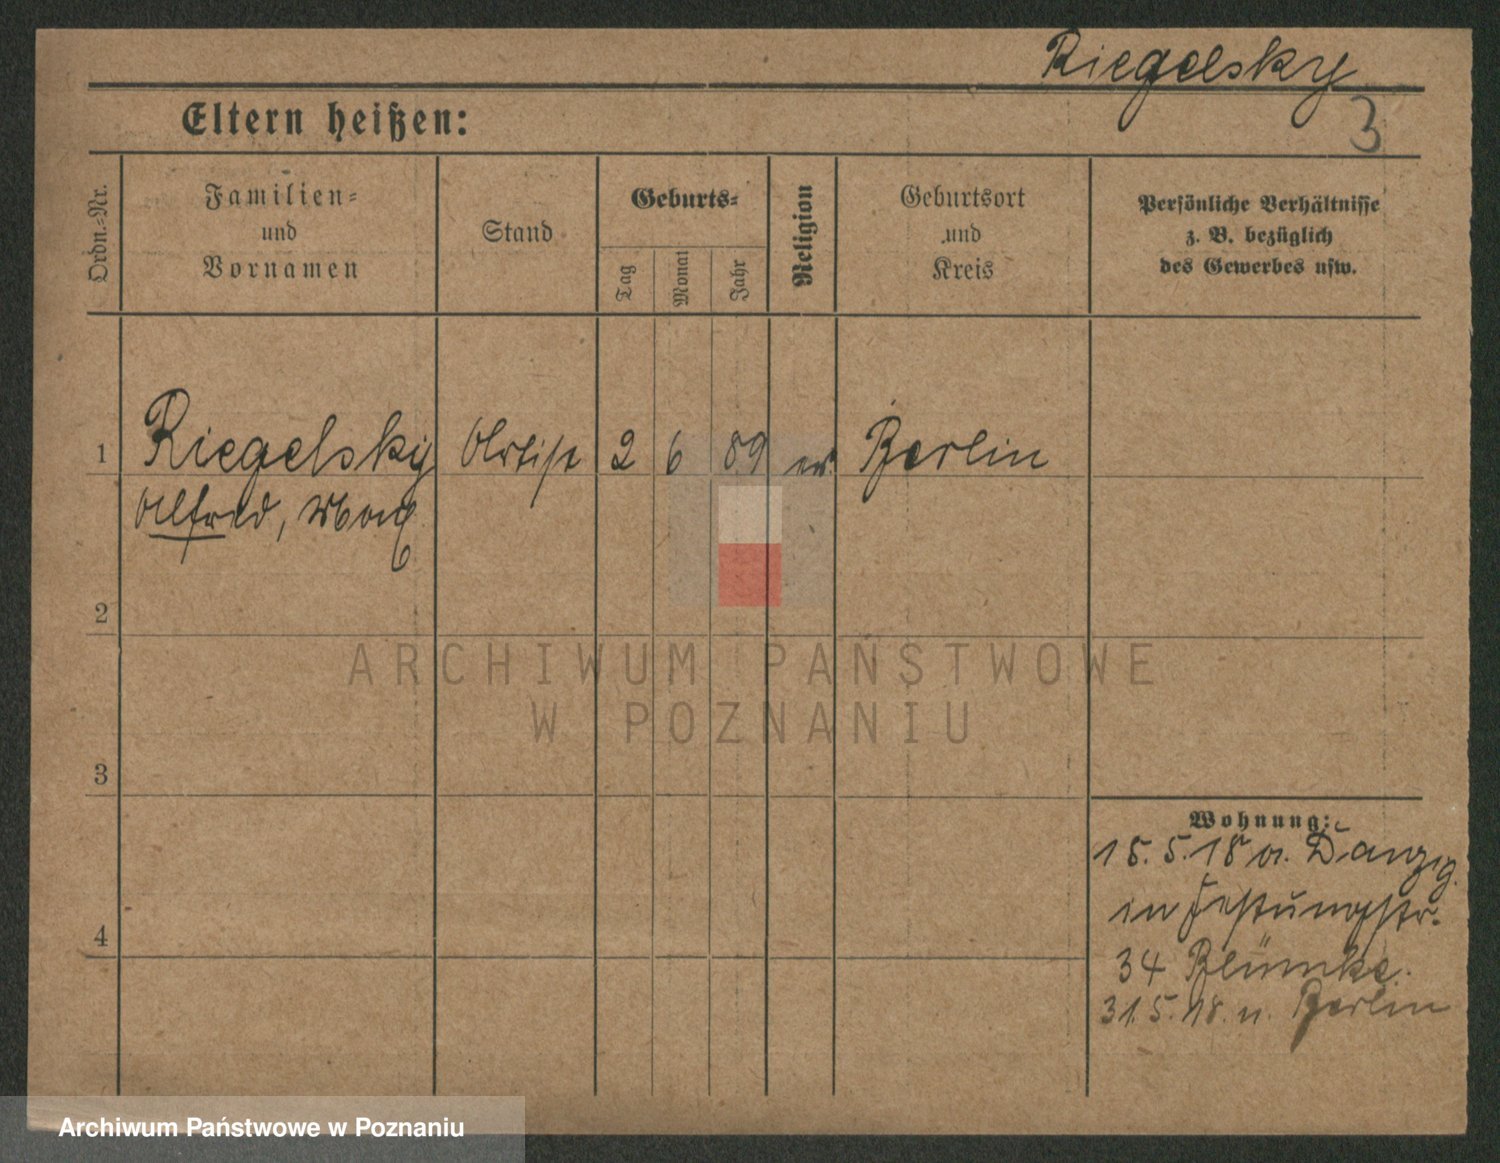 Riegelsky
3
Eltern heißen:
Ordn.-Nr.
Familien-
und
Vornamen
Stand
Geburts-
Tag
Monat
Jahr
Religion
Geburtsort
und
Kreis
Persönliche Verhältnisse
z. B. bezüglich
des Gewerbes usw.
1 Riegelsky Artist 2 6 89 ev Berlin
Alfred, Max
2
3
4
Wohnung:
15.5.18 a. Danzig.
in Festungstr.
34 Blümke.
31.5.18. n. Berlin
ARCHIWUM PAŃSTWOWE
W POZNANIU
Archiwum Państwowe w Poznaniu